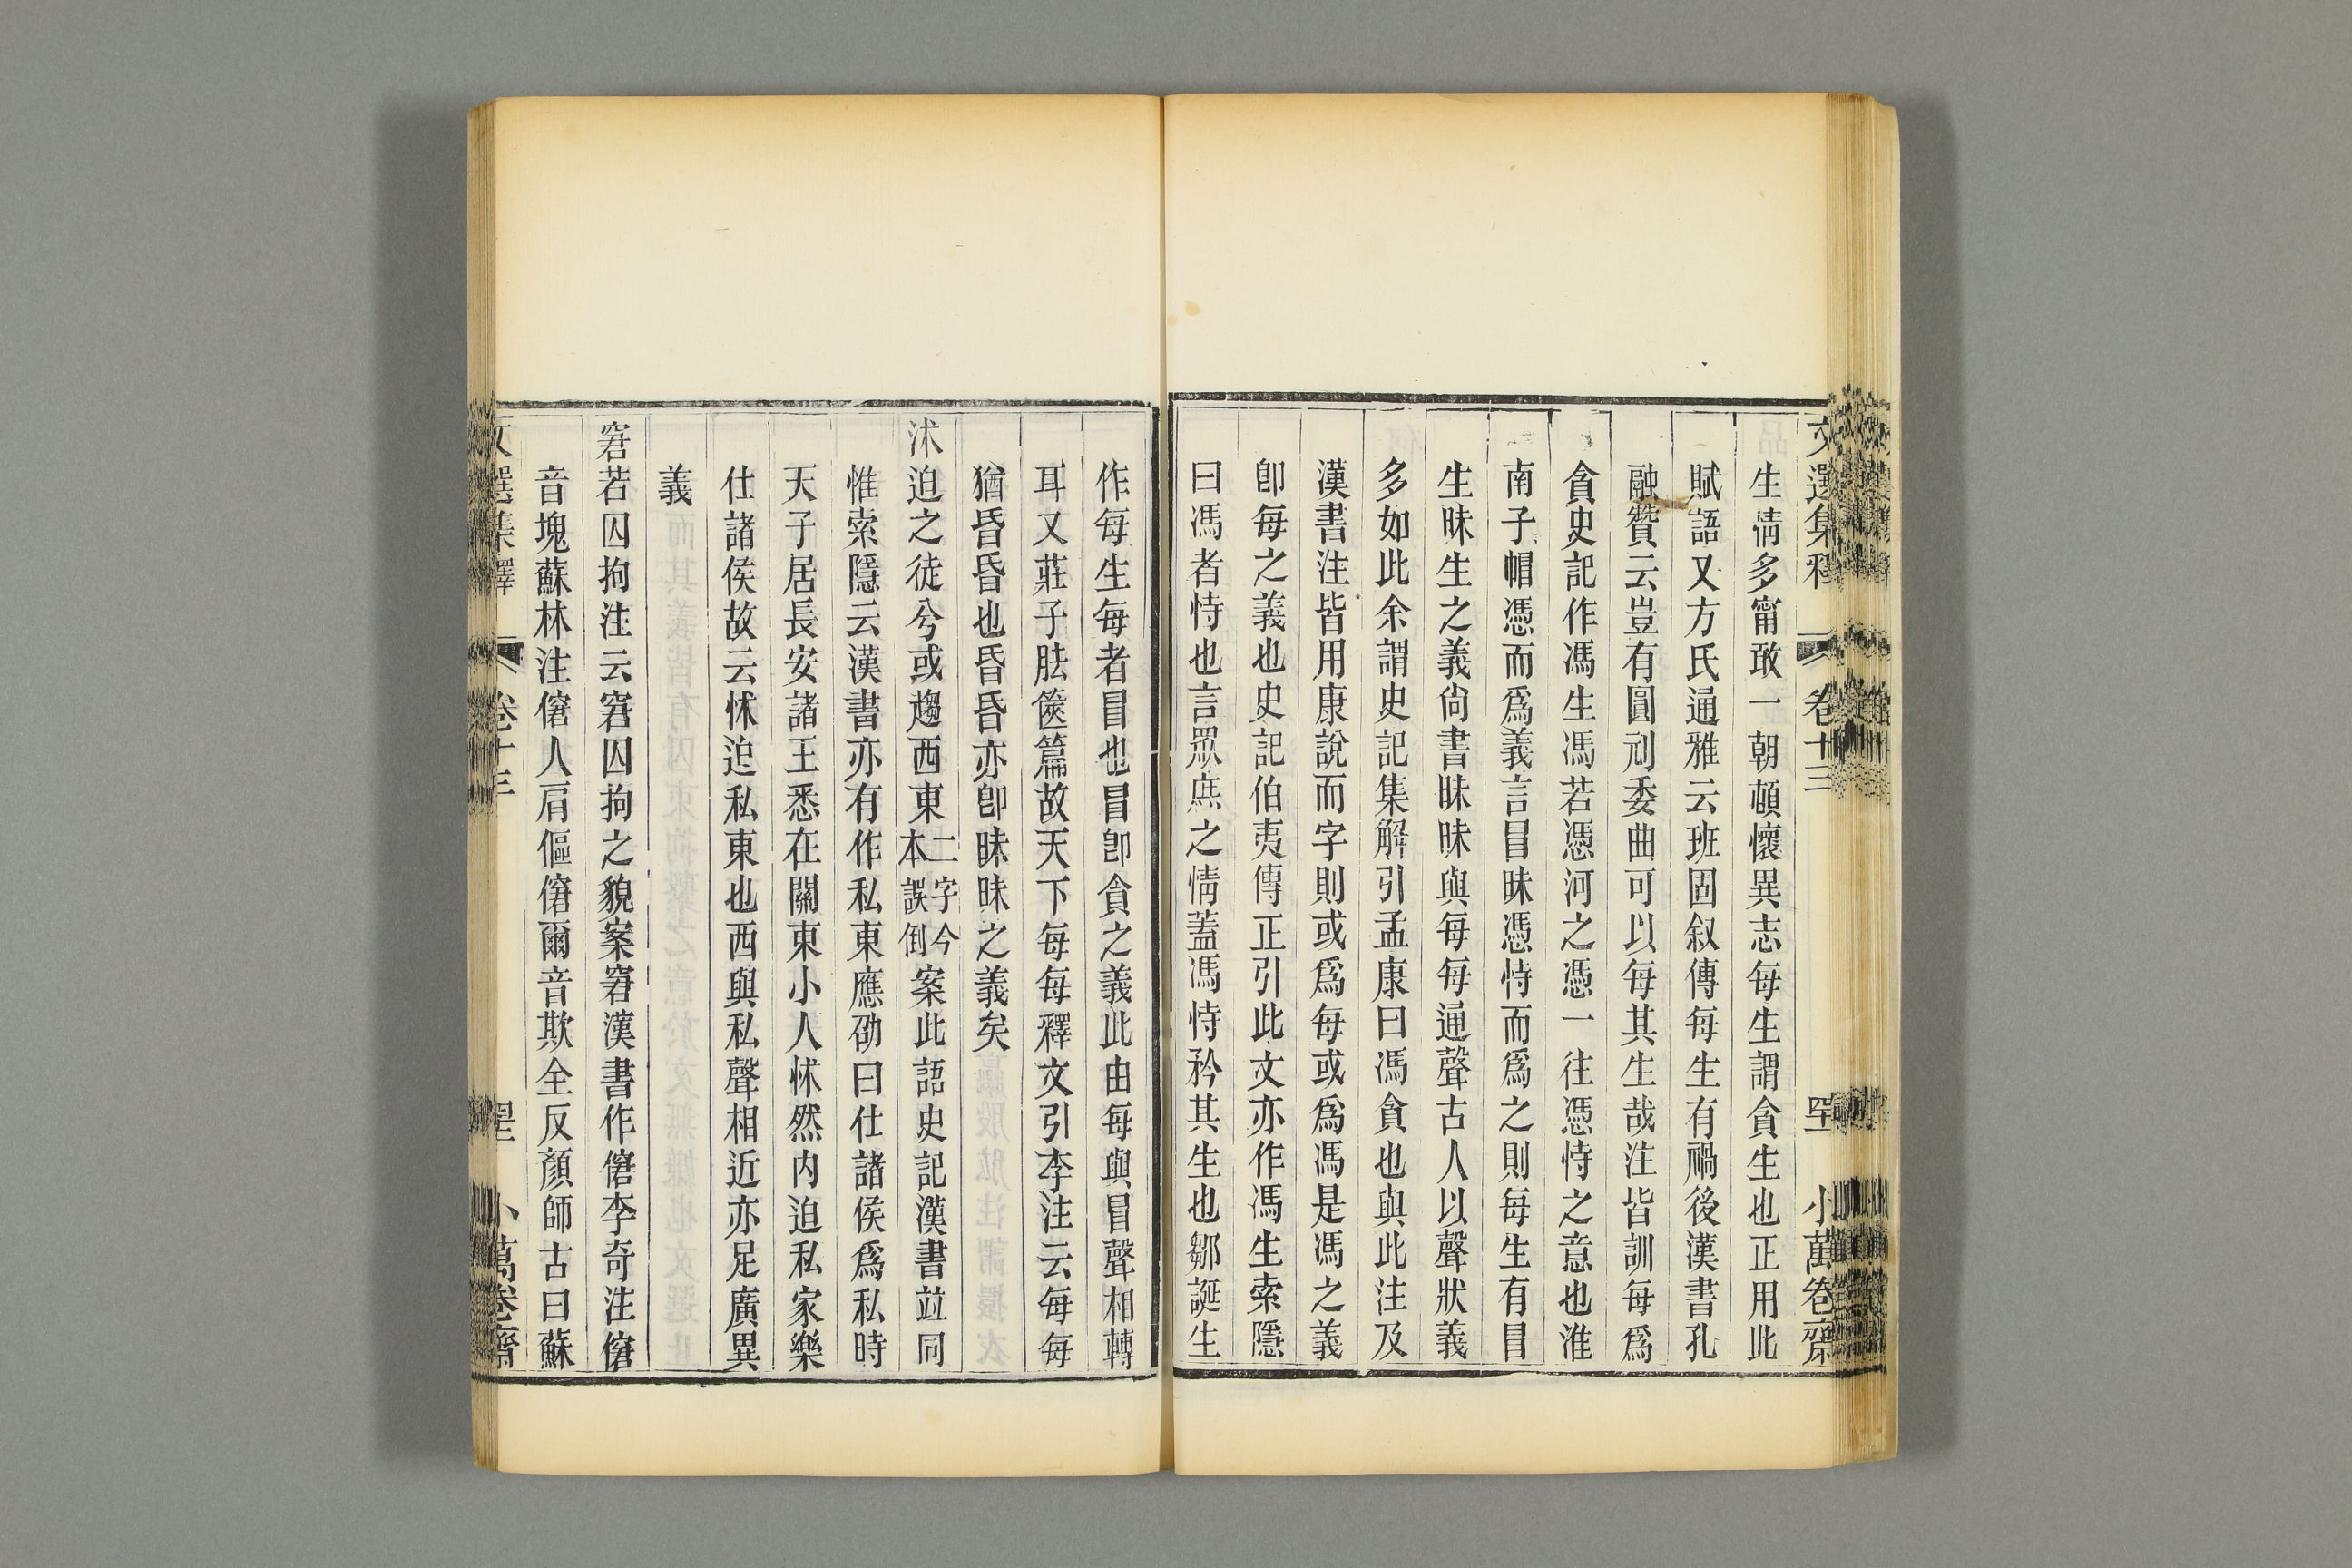 文選集釋 卷十三 小萬卷齋
生情多甯敢一朝頓懷異志每生謂貪生也正用此
賦語又方氏通雅云班固叙傳每生有禍後漢書孔
融贊云豈有圓刓委曲可以每其生哉注皆訓每爲
貪史記作馮生馮若憑河之憑一往憑恃之意也淮
南子帽憑而爲義言冒昧憑恃而爲之則每生有冒
生昧生之義尙書昧昧與每每通聲古人以聲狀義
多如此余謂史記集解引孟康曰馮貪也與此注及
漢書注皆用康說而字則或爲每或爲馮是馮之義
卽每之義也史記伯夷傳正引此文亦作馮生索隱
曰馮者恃也言眾庶之情蓋馮恃矜其生也鄒誕生
作每生每者冒也冒卽貪之義此由每與冒聲相轉
耳又莊子胠篋篇故天下每每釋文引李注云每每
猶昏昏也昏昏亦卽昧昧之義矣
怵迫之徒兮或趨西東二字今本誤倒案此語史記漢書竝同
惟索隱云漢書亦有作私東應劭曰仕諸侯爲私時
天子居長安諸王悉在關東小人怵然内迫私家樂
仕諸侯故云怵迫私東也西與私聲相近亦足廣異
義
窘若囚拘注云窘囚拘之貌案窘漢書作僒李奇注僒
音塊蘇林注僒人肩傴僒爾音欺全反顏師古曰蘇
文選集釋 卷十三 小萬卷齋